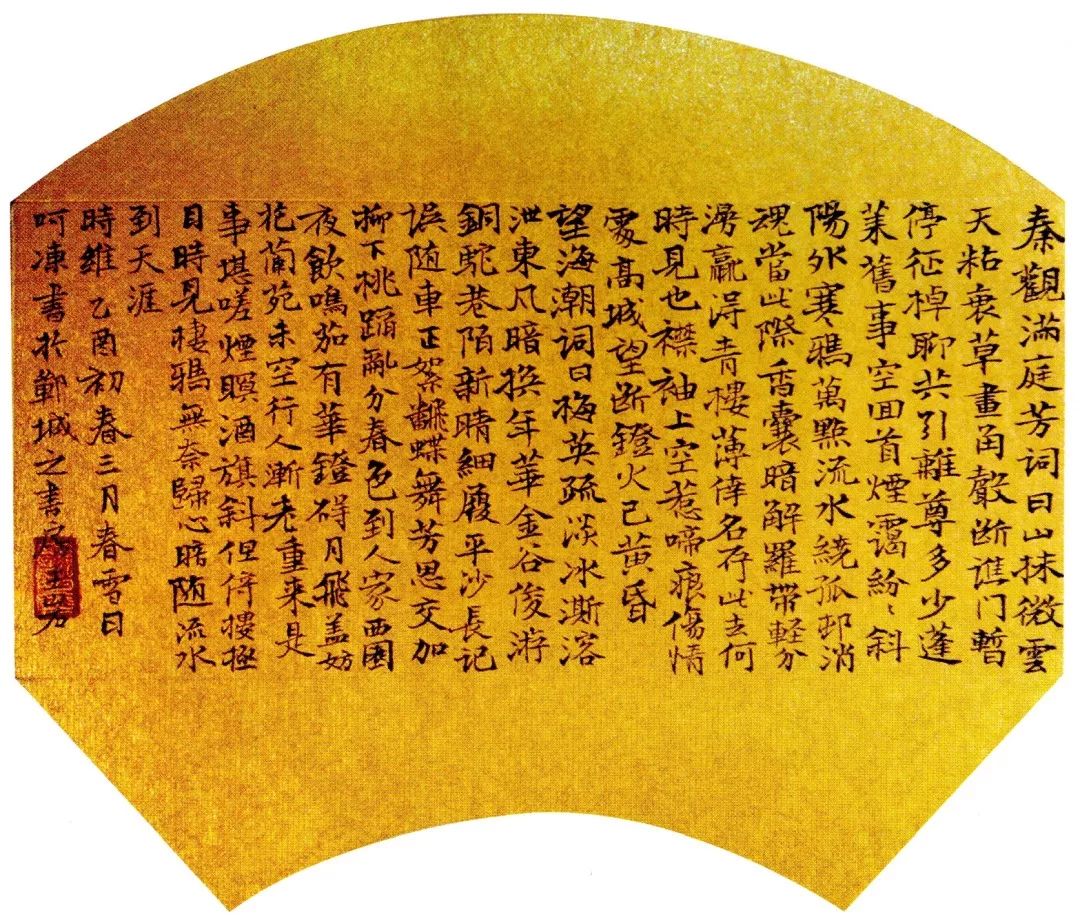 秦觀滿庭芳词曰山抹微雲
天粘衰草畫角聲断譙门暫
停征棹聊共引離尊多少蓬
莱舊事空回首煙靄紛〻斜
陽外寒鴉萬點流水繞孤邨消
魂當此際香囊暗解羅带軽分
漫贏得青樓薄倖名存此去何
時見也襟袖上空惹啼痕傷情
處高城望断鐙火已黄昏
望海潮词曰梅英疏淡冰澌溶
泄東风暗换年華金谷俊游
銅駝巷陌新晴細履平沙長记
误随車正絮飜蝶舞芳思交加
柳下桃蹊亂分春色到人家西園
夜飲鳴笳有華鐙碍月飛盖妨
花蘭苑未空行人漸老重来是
事堪嗟煙暝酒旗斜但倚樓極
目時見棲鴉無奈歸心暗随流水
到天涯
時維乙酉初春三月春雪日
呵凍書於鄴城之書